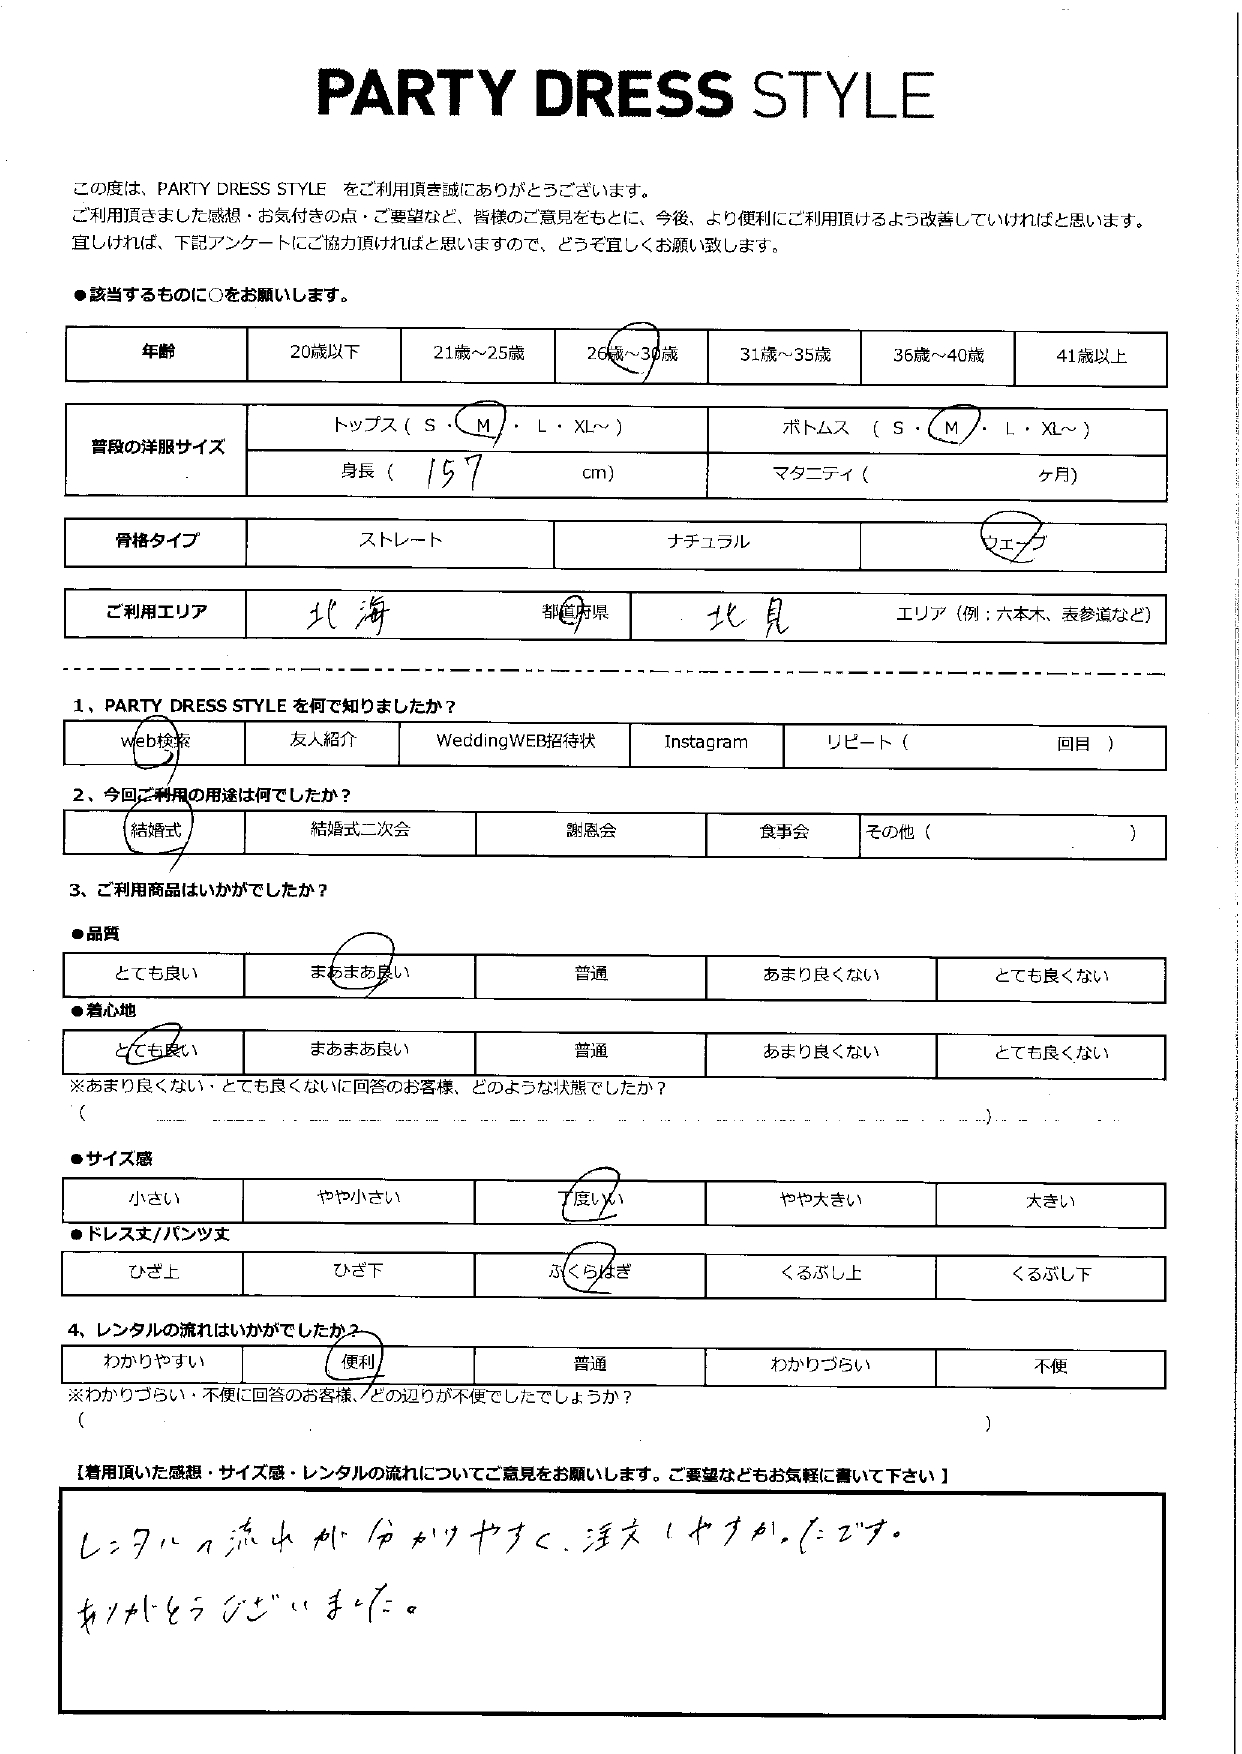 PARTY DRESS STYLE
この度は、PARTY DRESS STYLE をご利用頂き誠にありがとうございます。
ご利用頂きました感想・お気付きの点・ご要望など、皆様のご意見をもとに、今後、より便利にご利用頂けるよう改善していければと思います。
宜しければ、下記アンケートにご協力頂ければと思いますので、どうぞ宜しくお願い致します。
●該当するものに○をお願いします。
年齢 20歳以下 21歳～25歳 26歳～30歳 31歳～35歳 36歳～40歳 41歳以上
普段の洋服サイズ トップス ( S ・ M ・ L ・ XL～ ) ボトムス ( S ・ M ・ L ・ XL～ )
身長 ( 157 cm) マタニティ ( ヶ月)
骨格タイプ ストレート ナチュラル ウエーブ
ご利用エリア 北海 都道府県 北見 エリア (例:六本木、表参道など)
1、PARTY DRESS STYLE を何で知りましたか?
web検索 友人紹介 WeddingWEB招待状 Instagram リピート ( 回目 )
2、今回ご利用の用途は何でしたか?
結婚式 結婚式二次会 謝恩会 食事会 その他 ( )
3、ご利用商品はいかがでしたか?
●品質
とても良い まあまあ良い 普通 あまり良くない とても良くない
●着心地
とても良い まあまあ良い 普通 あまり良くない とても良くない
※あまり良くない・とても良くないに回答のお客様、どのような状態でしたか?
( )
●サイズ感
小さい やや小さい 丁度いい やや大きい 大きい
●ドレス丈/パンツ丈
ひざ上 ひざ下 ふくらはぎ くるぶし上 くるぶし下
4、レンタルの流れはいかがでしたか?
わかりやすい 便利 普通 わかりづらい 不便
※わかりづらい・不便に回答のお客様、どの辺りが不便でしたでしょうか?
( )
【着用頂いた感想・サイズ感・レンタルの流れについてご意見をお願いします。ご要望などもお気軽に書いて下さい】
レンタルの流れが分かりやすく、注文しやすかったです。
ありがとうございました。